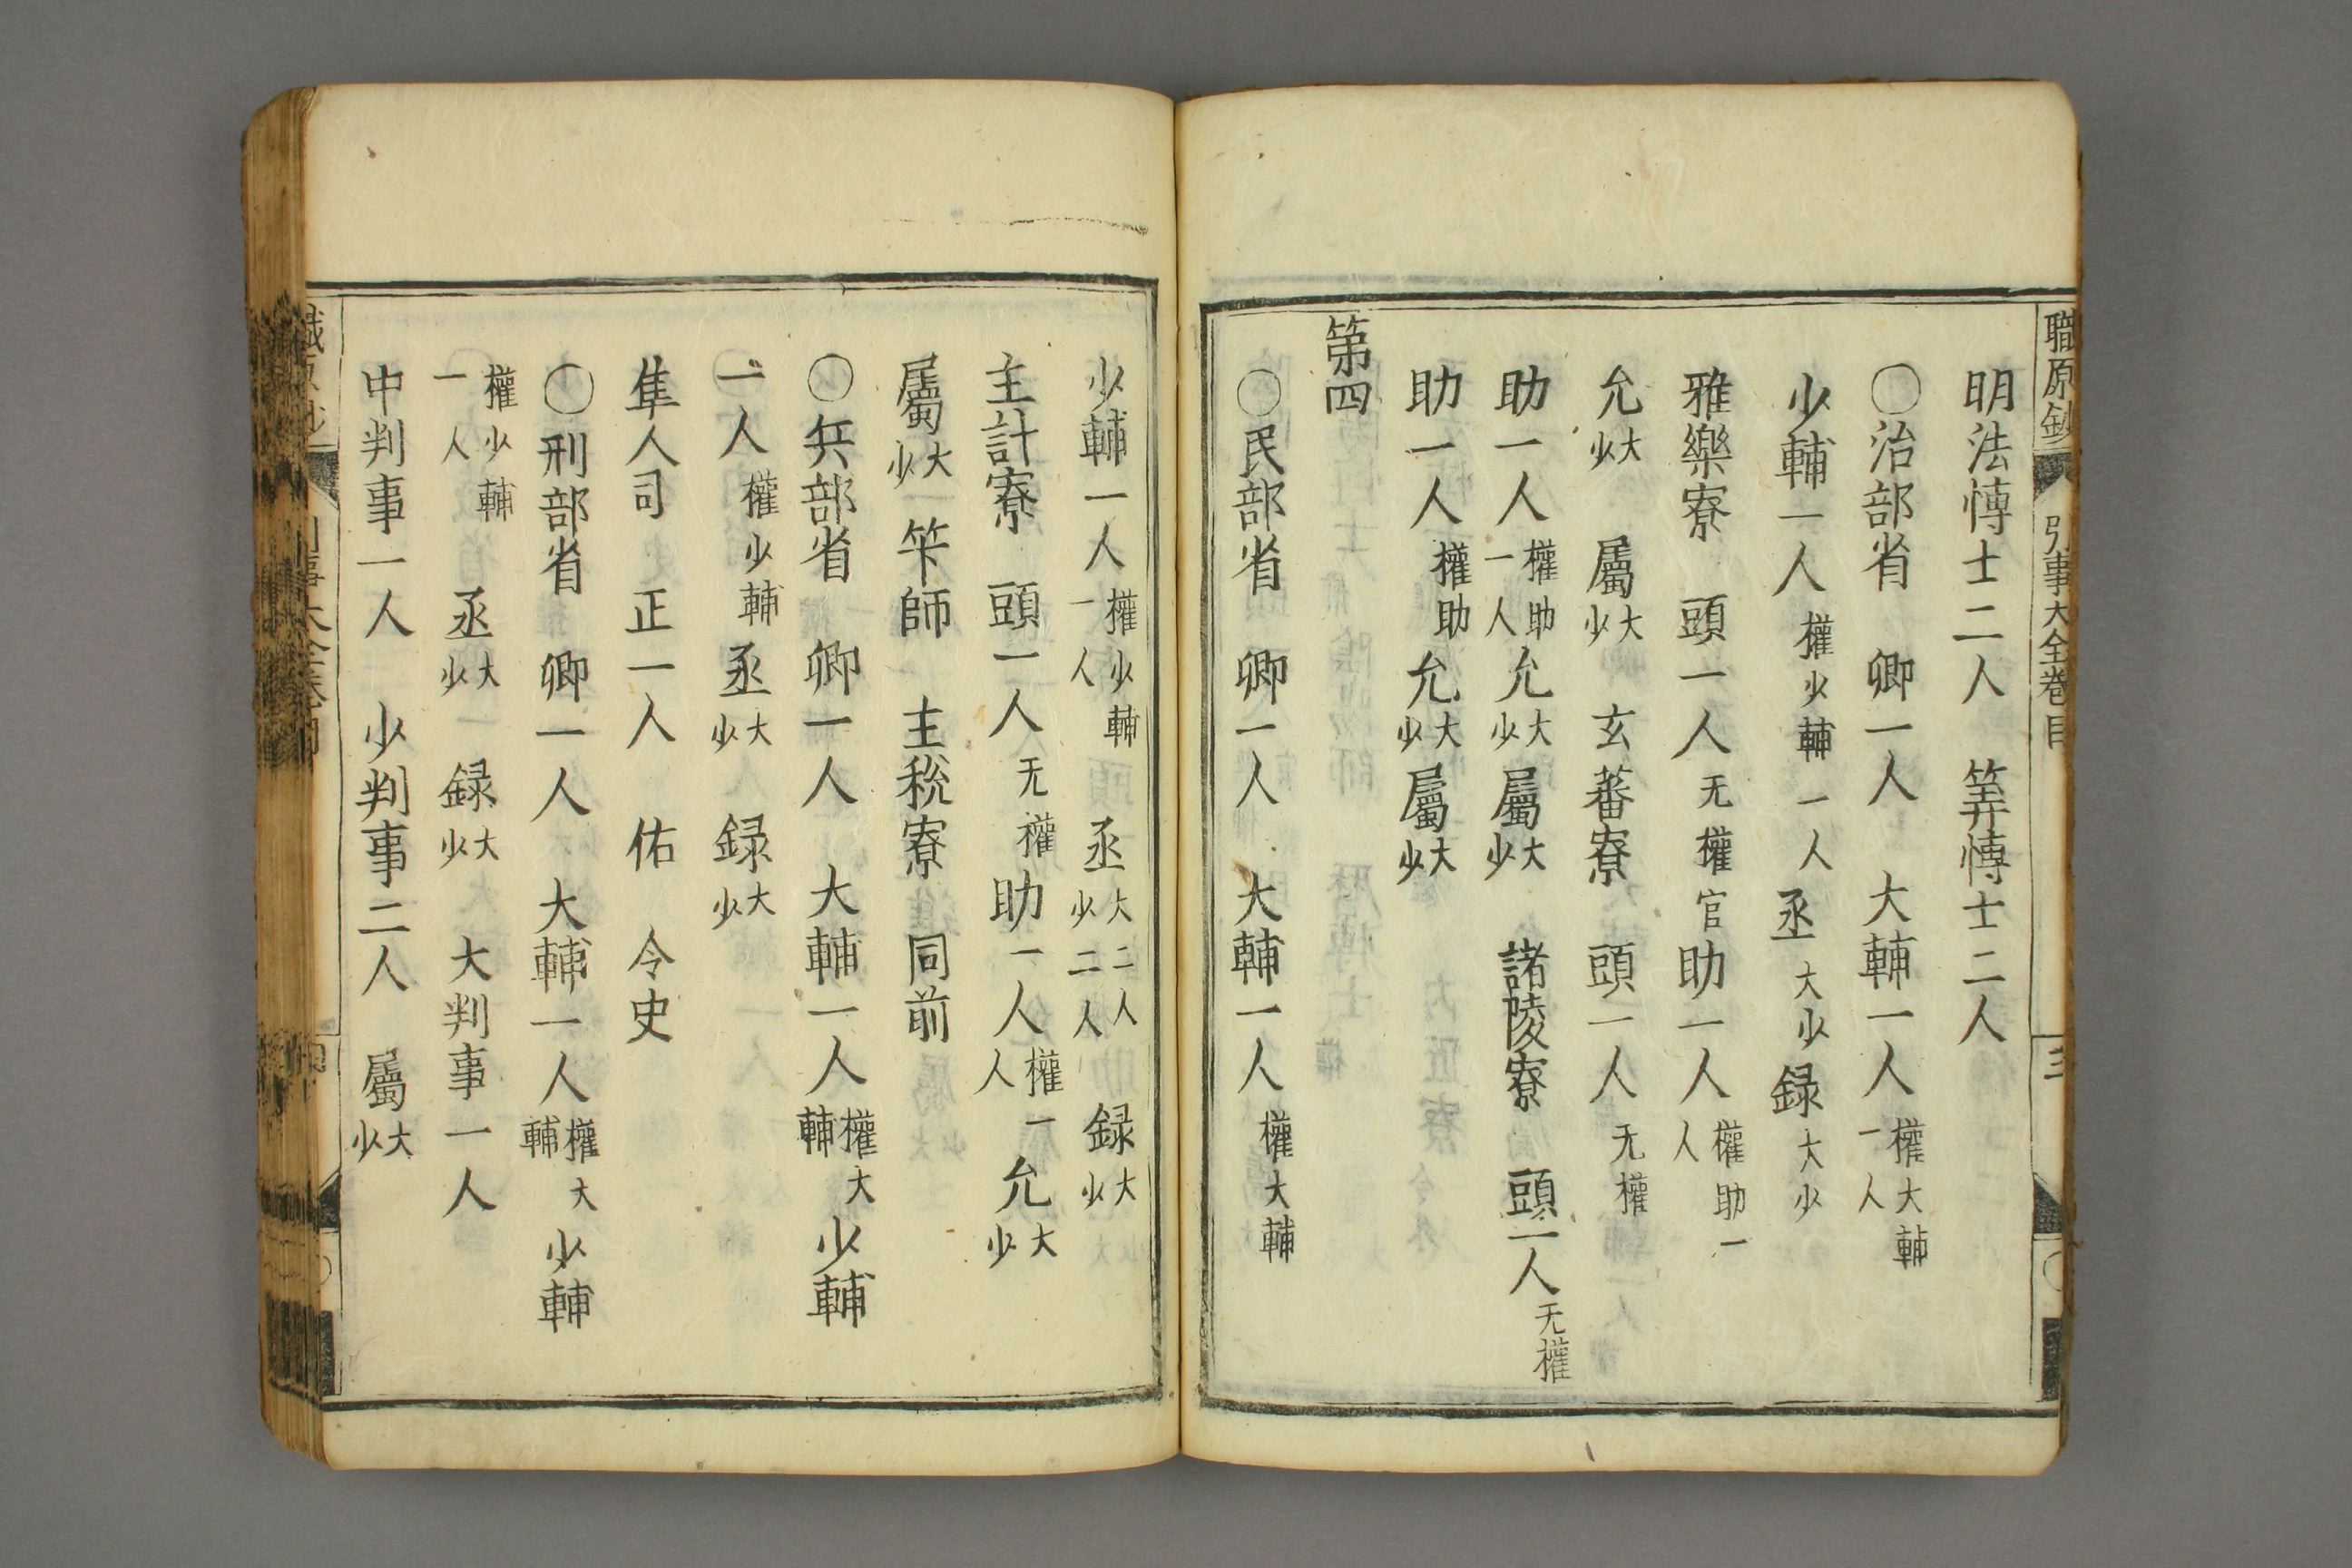 職原鈔 引事大全卷目 三
明法愽士二人 筭愽士二人
〇治部省 卿一人 大輔一人 權大輔一人
少輔一人 權少輔一人 丞 大少 録 大少
雅樂寮 頭一人 无權官 助一人 權助一人
允 大少 屬 大少 玄蕃寮 頭一人 无權
助一人 權助一人 允 大少 屬 大少 諸陵寮 頭一人 无權
助一人 權助 允 大少 屬 大少
第四
〇民部省 卿一人 大輔一人 權大輔
少輔一人 權少輔一人 丞 大二人少二人 録 大少
主計寮 頭一人 无權 助一人 權一人 允 大少
屬 大少 笇師 主税寮 同前
〇兵部省 卿一人 大輔一人 權大輔 少輔
一人 權少輔 丞 大少 録 大少
隼人司 正一人 佑 令史
〇刑部省 卿一人 大輔一人 權大輔 少輔
一人 權少輔 丞 大少 録 大少 大判事一人
中判事一人 少判事二人 屬 大少